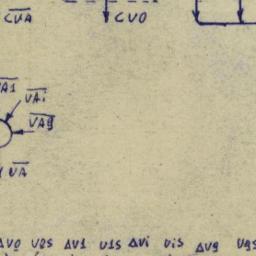 CVA CVO
VA1
VAi
VA9
VA
ΔV0 V2S ΔV1 V1S ΔVi ViS ΔV9 V9S